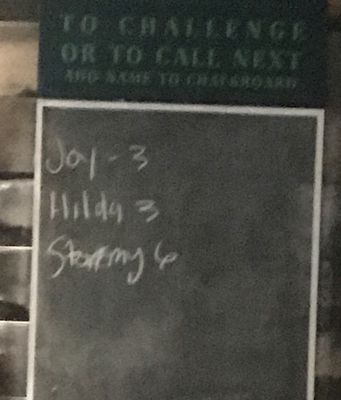 TO CHALLENGE
OR TO CALL NEXT
ADD NAME TO CHALKBOARD
Jay - 3
Hilda 3
Stormy 6